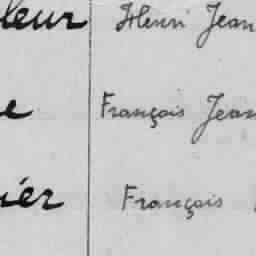 leur Henri Jean
e François Jean
ier François